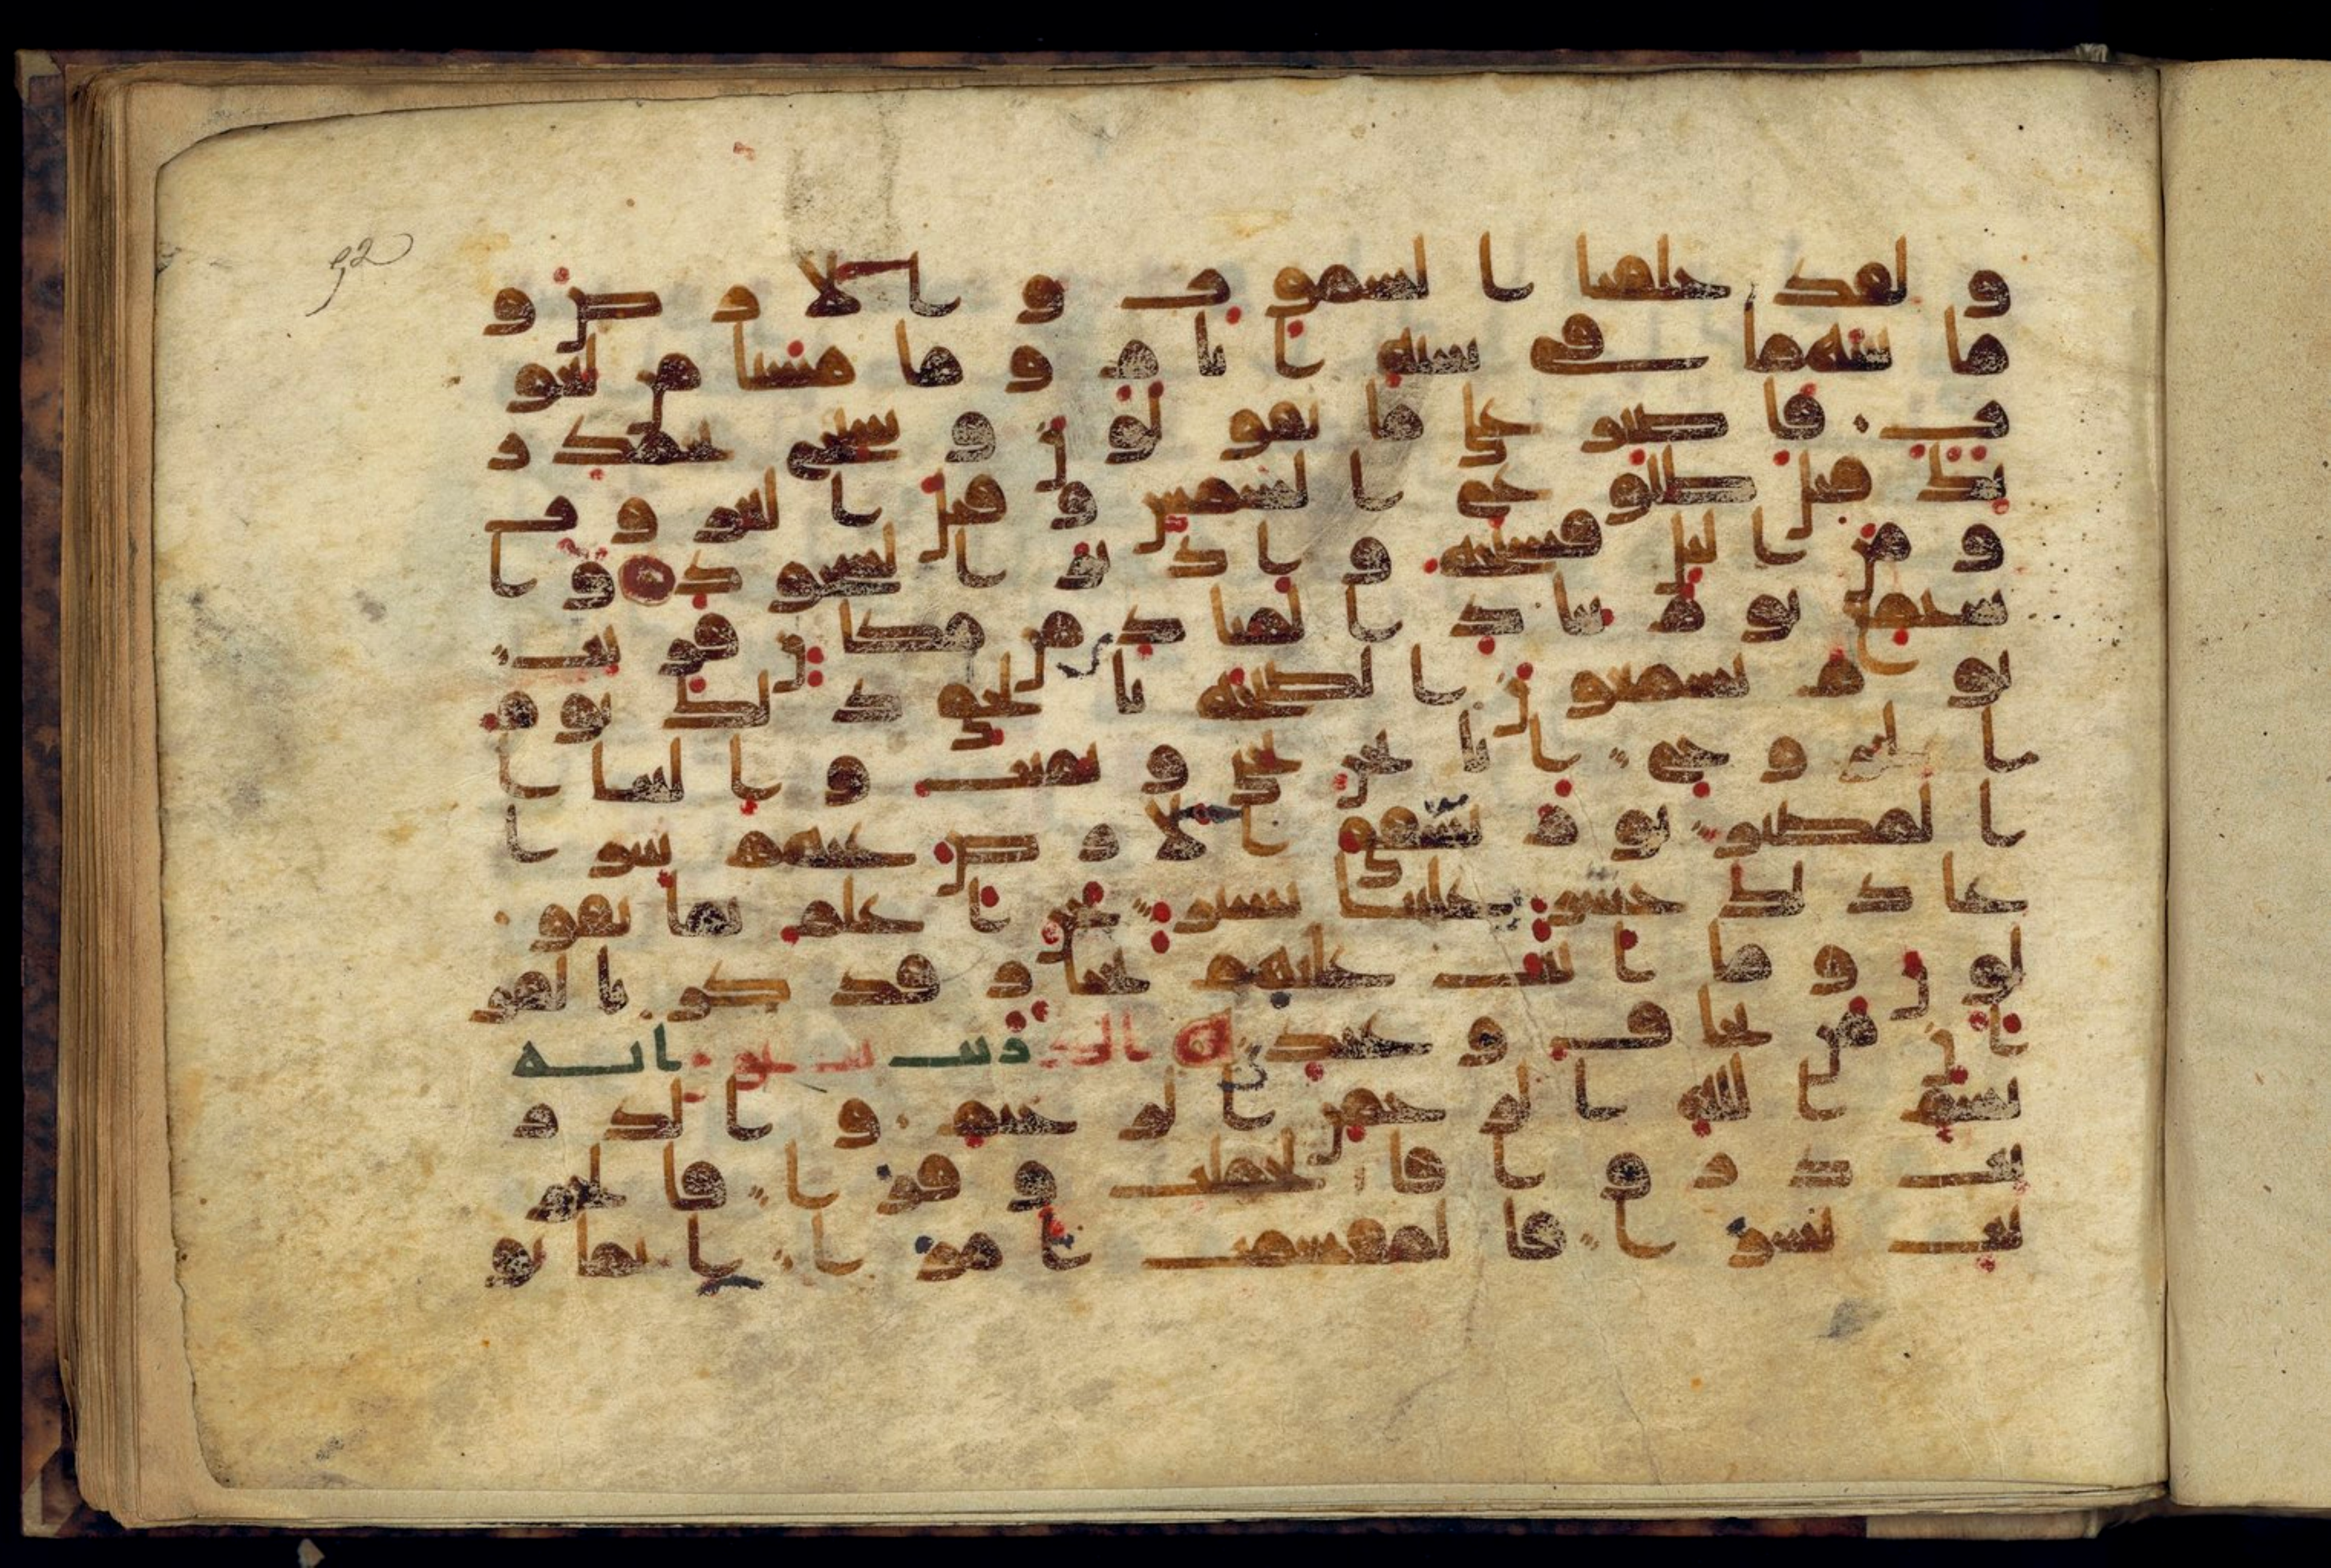 و لقد خلقنا ا لسموت و ا لا ر ض و
ما بينهما في ستة ا يا م و ما مسنا من لغو
ب فا صبر علي ما يقو لو ن و سبح بحمد ر
بك قبل طلو ع ا لشمس و قبل ا لغر و ب
و من ا ليل فسبحه و ا د بر ا لسجو د و ا
ستمع يو م ينا د ا لمنا د من مكا ن قريب
يو م يسمعو ن ا لصيحة با لحق ذ لك يو م
ا لخر و ج ا نا نحن نحي و نميت و ا لينا ا
ا لمصير يو م تشقق ا لا ر ض عنهم سر ا
عا ذ لك حشر علينا يسير نحن ا علم بما يقو
لو ن و ما ا نت عليهم بجبا ر فذ كر با لقر
ا ن من يخا ف و عيد الذ ريت ستو ن ا ية
بسم ا لله ا لر حمن ا لر حيم و ا لذ ر
يت ذ ر و ا فا لحملت و قر ا فا لجر
يت يسر ا فا لمقسمت ا مر ا ا نما تو